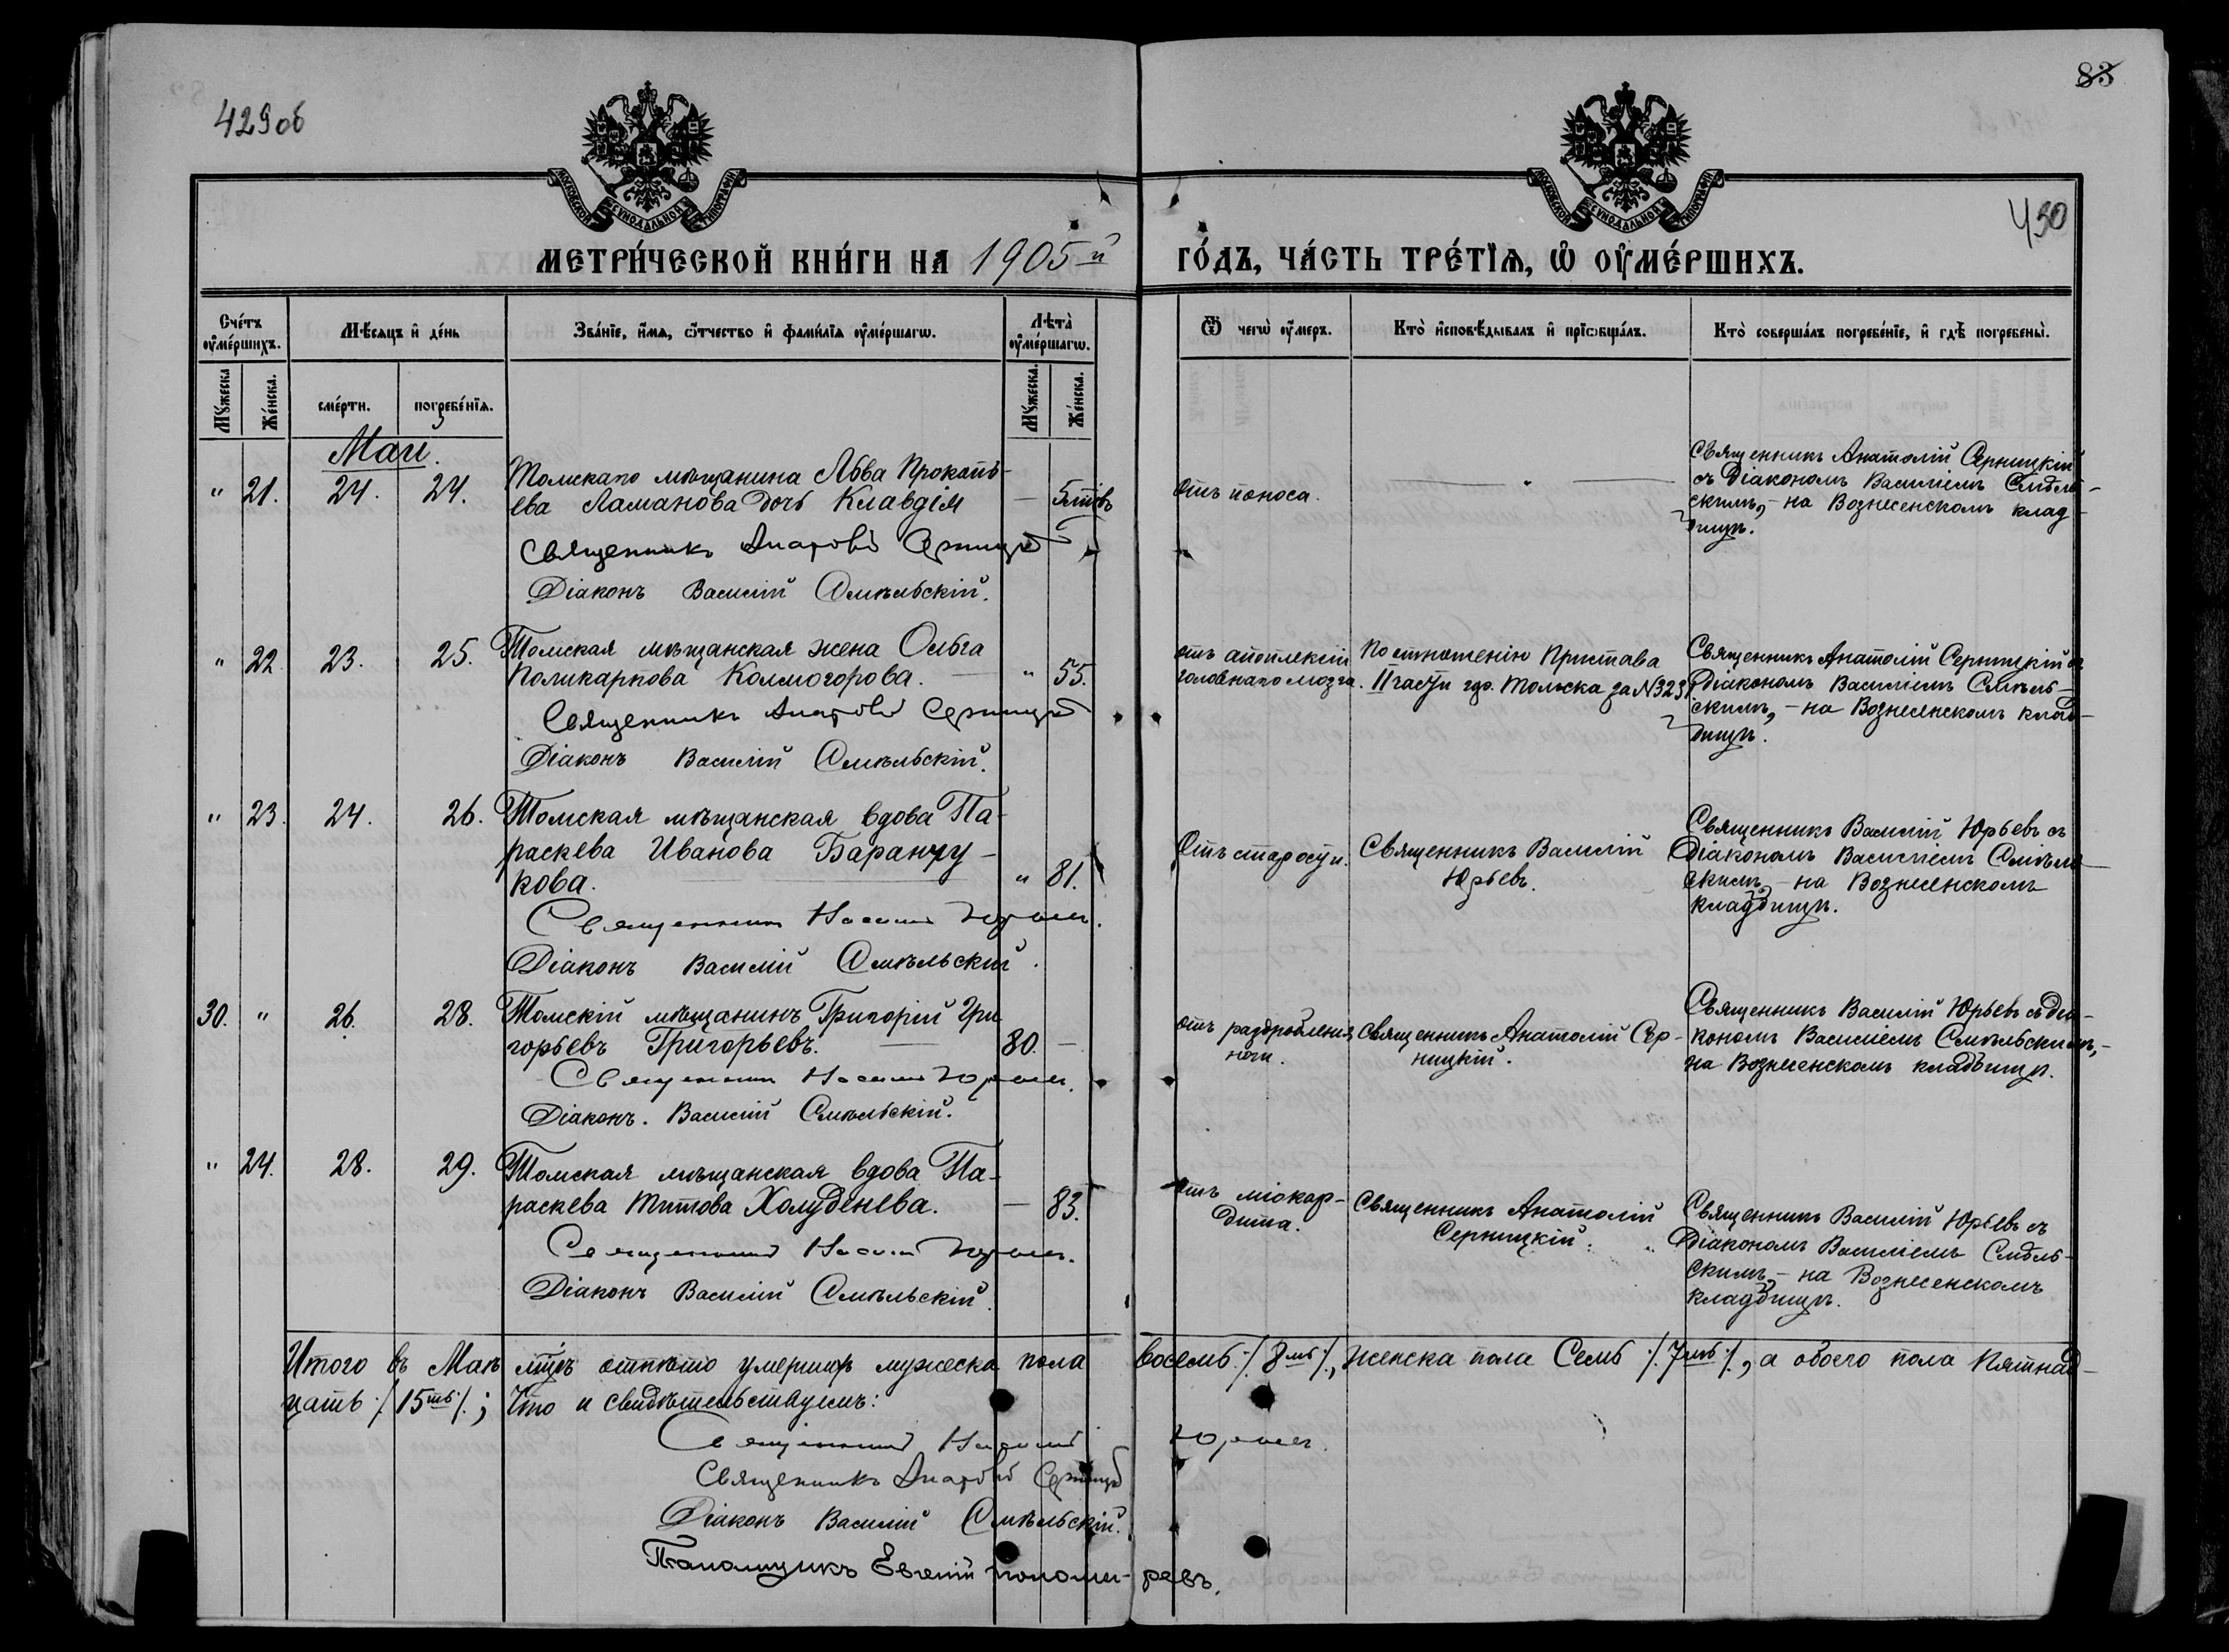 429об
83
430
МОСКОВСКОЙ СѴНОДАЛЬНОЙ ТИПОГРАФІИ
МОСКОВСКОЙ СѴНОДАЛЬНОЙ ТИПОГРАФІИ
МЕТРИ́ЧЕСКОЙ КНИ́ГИ НА 1905й ГО́ДЪ, ЧА́СТЬ ТРЕ́ТІѦ, Ѡ ОУМЕ́РШИХЪ.
Сче́тъ оуме́ршихъ.
Мѣ́сяцъ и де́нь
Зва́ніе, и́мѧ, ѻ́тчество и фами́ліѧ оуме́ршагѡ.
Лѣта̀ оуме́ршагѡ.
Ѿ чегѡ̀ оу́меръ.
Кто̀ исповѣ́дывалъ и прїѡбща́лъ.
Кто̀ соверша́лъ погребе́ніе, и гдѣ̀ погребены̀.
Мꙋ́жеска
Же́нска.
сме́рти.
погребе́ніѧ.
Мꙋ́жеска.
Же́нска.
Маи.
" 21. 24. 24.
Томскаго мѣщанина Льва Прокопь-
ева Ламанова дочь Клавдія
— 5тів
Священникъ Анатолій Серницкій
Діаконъ Василій Смѣльскій.
Отъ поноса.
— " —
Священникъ Анатолій Серницкій
съ Діакономъ Василіемъ Смѣль-
скимъ, - на Вознесенскомъ клад-
бищѣ.
" 22 23. 25.
Томская мѣщанская жена Ольга
Поликарпова Колмогорова.
" 55.
Священникъ Анатолій Серницкій
Діаконъ Василій Смѣльскій.
отъ апоплексіи
головнаго мозга.
По отношенію Пристава
II части гор. Томска за № 323
Священникъ Анатолій Серницкій съ
Діакономъ Василіемъ Смѣль-
скимъ, - на Вознесенскомъ клад-
бищѣ.
" 23. 24. 26.
Томская мѣщанская вдова Па-
раскева Иванова Баранчу-
кова.
" 81.
Священникъ Василій Юрьевъ.
Діаконъ Василій Смѣльскій.
Отъ старости.
Священникъ Василій
Юрьевъ.
Священникъ Василій Юрьевъ съ
Діакономъ Василіемъ Смѣль-
скимъ, - на Вознесенскомъ
кладбищѣ.
30. " 26. 28.
Томскій мѣщанинъ Григорій Гри
горьевъ Григорьевъ.
80. —
Священникъ Василій Юрьевъ.
Діаконъ. Василій Смѣльскій.
отъ раздробленія
ноги.
Священникъ Анатолій Сер-
ницкій.
Священникъ Василій Юрьевъ съ Діа-
кономъ Василіемъ Смѣльскимъ, -
на Вознесенскомъ кладбищѣ.
" 24. 28. 29.
Томская мѣщанская вдова Па-
раскева Титова Холуденева.
— 83.
Священникъ Василій Юрьевъ.
Діаконъ Василій Смѣльскій.
отъ міокар-
дита.
Священникъ Анатолій
Серницкій.
Священникъ Василій Юрьевъ съ
Діакономъ Василіемъ Смѣль-
скимъ, - на Вознесенскомъ
кладбищѣ.
Итого въ Маѣ мцѣ отпѣто умершихъ мужеска пола восемь ·/. 8мь ·/., женска пола Семь ·/. 7мь ·/., а обоего пола Пятнад-
цать ·/. 15ть ·/.; Что и свидѣтельствуемъ:
Священникъ Василій Юрьевъ.
Священникъ Анатолій Серницкій
Діаконъ Василій Смѣльскій.
Псаломщикъ Евгеній Пономаревъ.